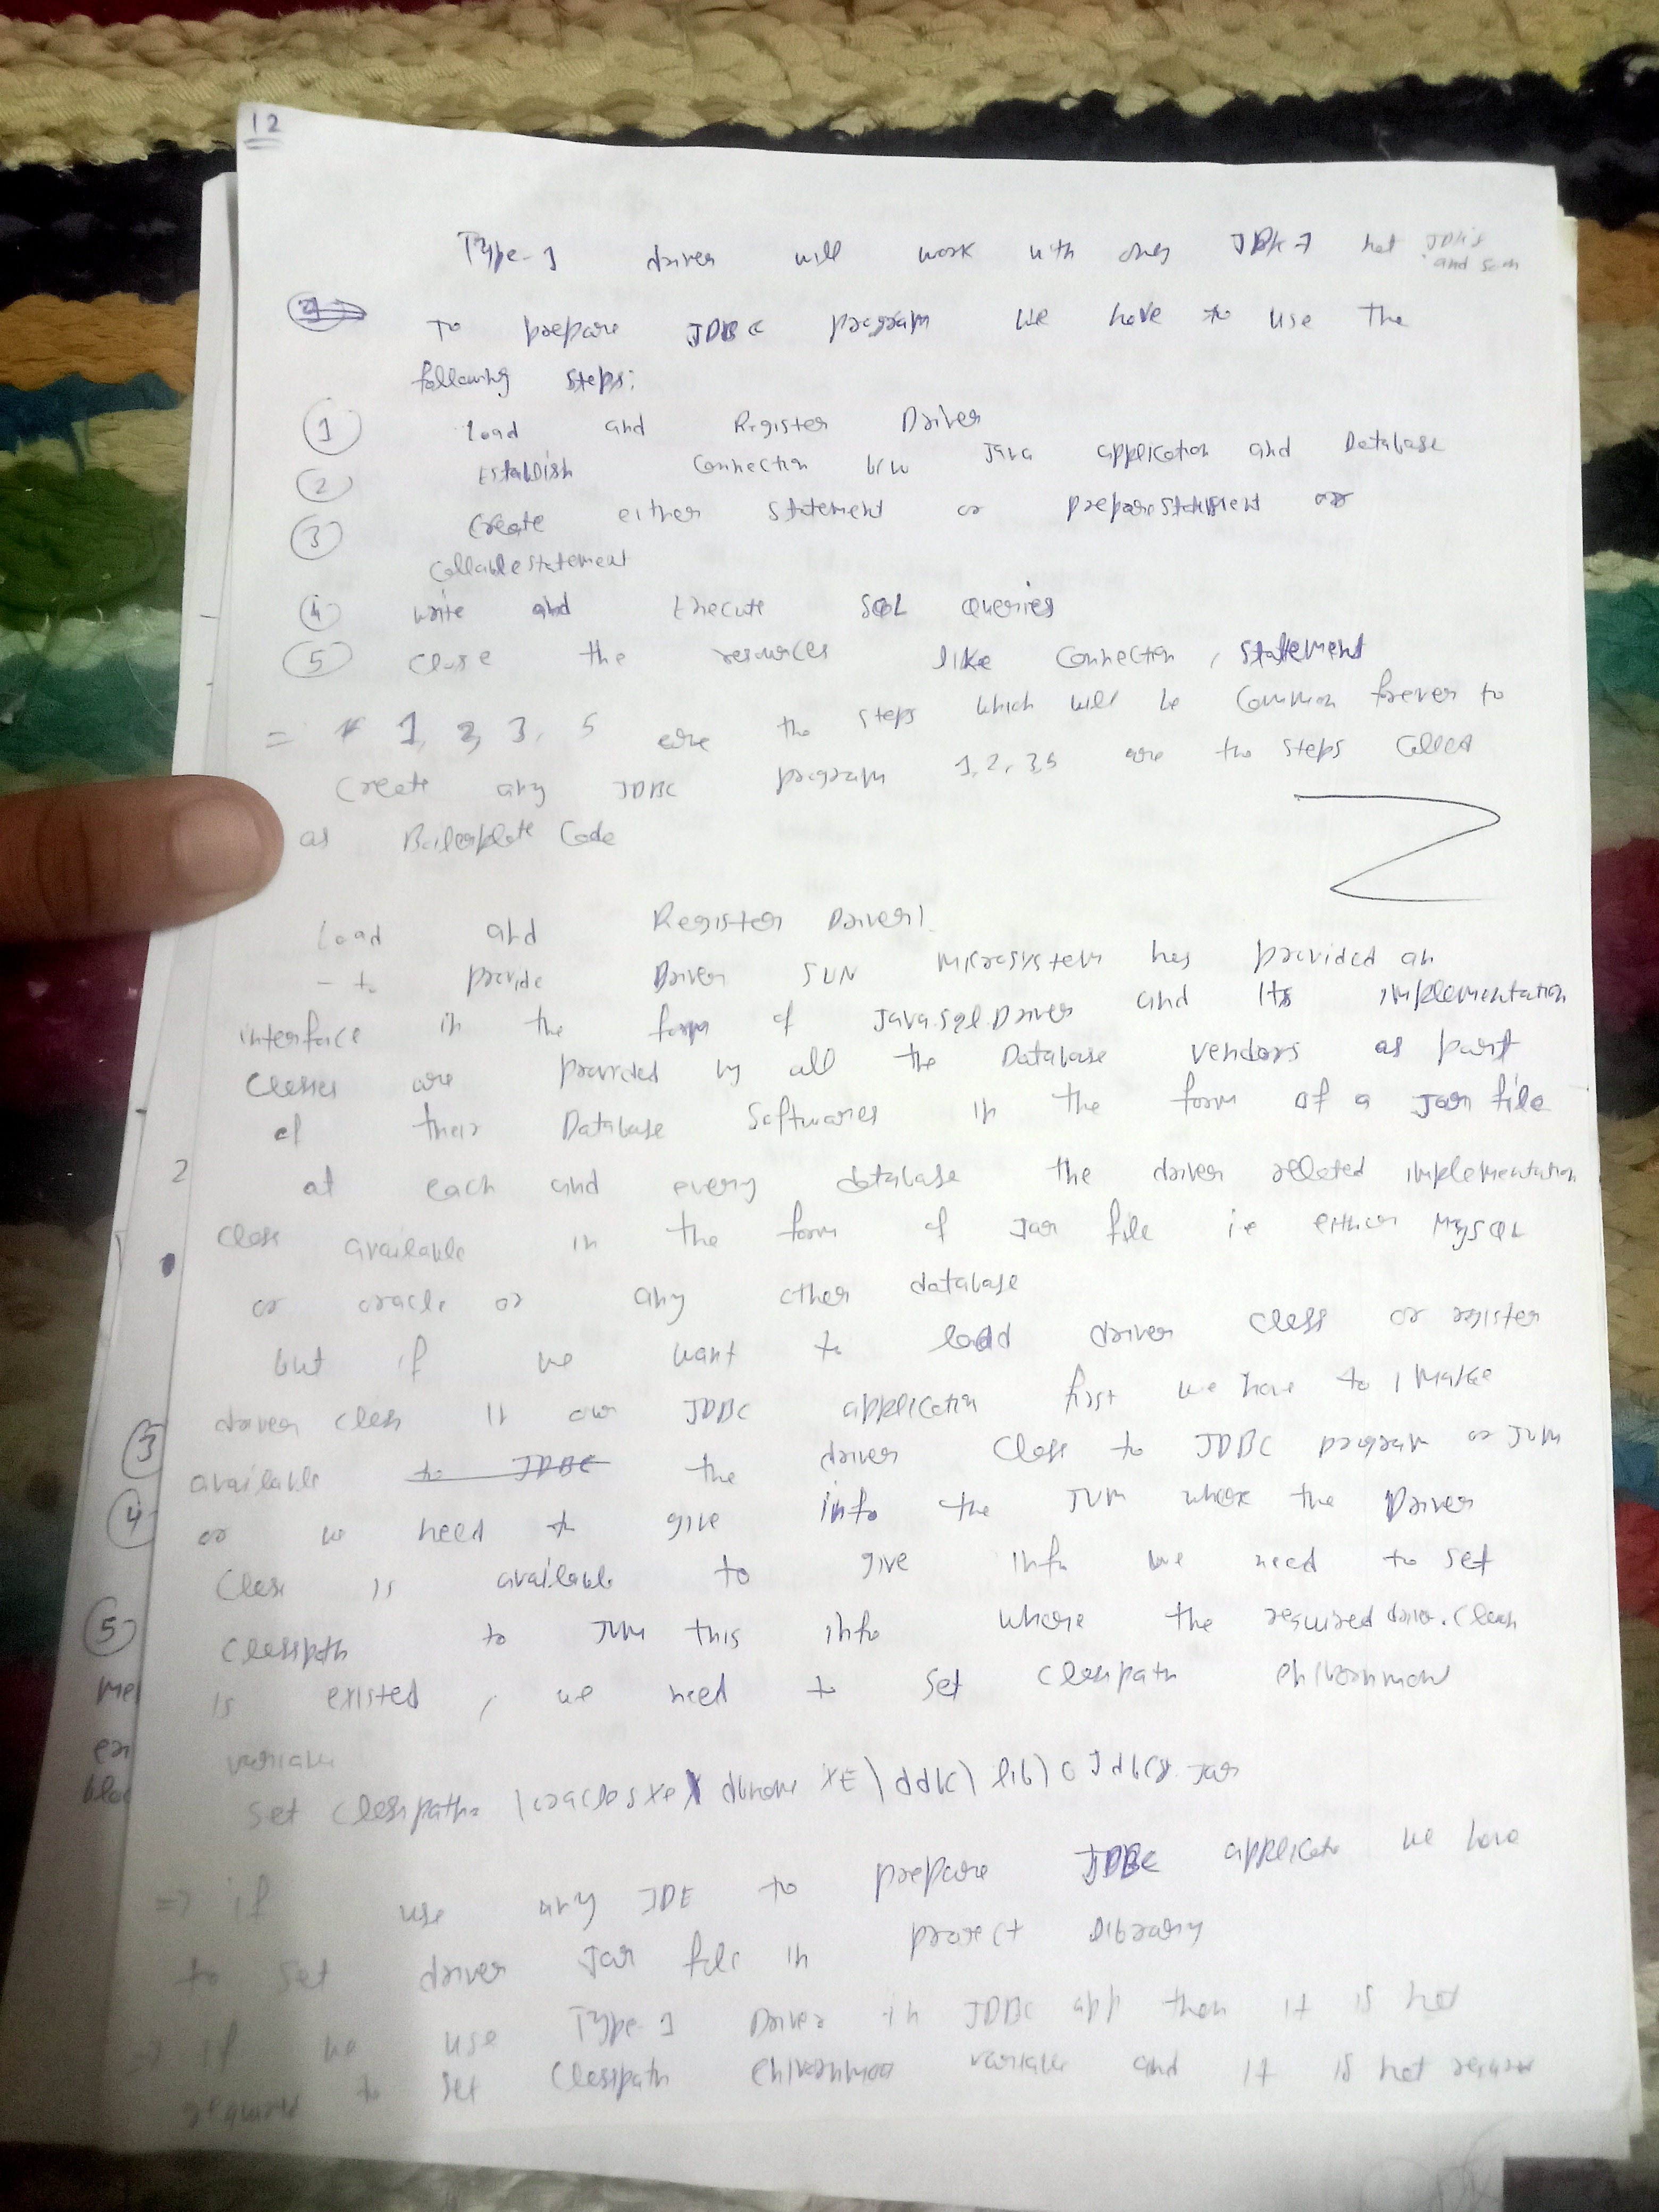 12
Type-1 driver will work with only JDK-7 not JDK8
and so on
To prepare JDBC program we have to use the
following steps:
1 Load and Register Driver
2 Establish Connection b/w Java application and Database
3 Create either statement or preparestatement or
Callablestatement
4 write and Execute SQL Queries
5 close the resources like Connection, Statement
= * 1, 2, 3, 5 are the steps which will be common forever to
Create any JDBC program 1, 2, 3, 5 are the steps called
as Boilerplate Code
Load and Register Driver!
- to provide Driver SUN Microsystem has provided an
interface in the form of Java.sql.Driver and its implementation
classes are provided by all the Database vendors as part
of their Database Softwares in the form of a Jar file
2
at each and every database the driver related implementation
class available in the form of Jar file i.e either MySQL
or oracle or any other database
but if we want to load driver class or register
driver class in our JDBC application first we have to make
3
available to JDBC the driver class to JDBC program or JVM
4
or we need to give info the JVM where the Driver
class is available to give info we need to set
5
classpath to JVM this info where the required driver.class
me is existed, we need to set classpath
variable
set classpath=
=> if use any IDE to prepare JDBC we have
to set driver Jar file in project library
-> if we use Type-1 Driver in JDBC app then it is not
required to set classpath variable and it is not